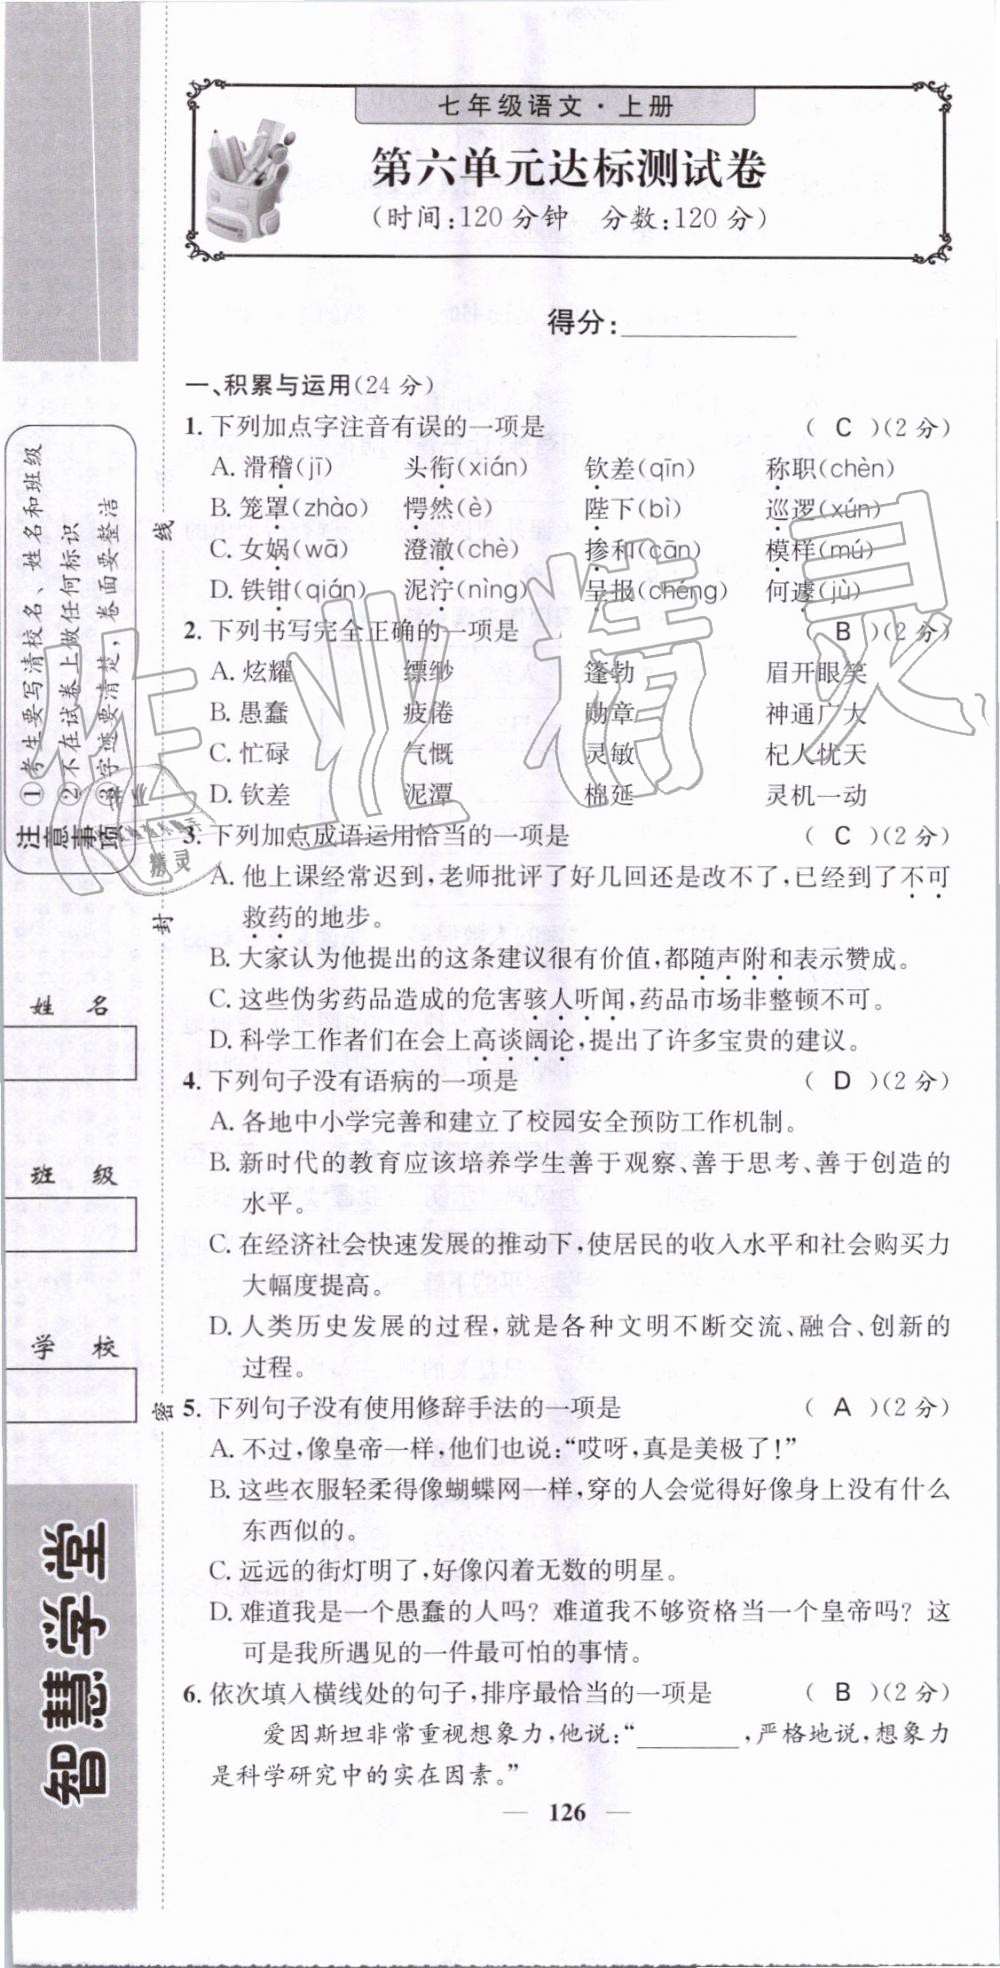 七年级语文·上册
第六单元达标测试卷
(时间:120分钟 分数:120分)
得分:
一、积累与运用(24分)
1. 下列加点字注音有误的一项是 ( C )(2分)
A. 滑稽(jī) 头衔(xián) 钦差(qīn) 称职(chèn)
B. 笼罩(zhào) 愕然(è) 陛下(bì) 巡逻(xún)
C. 女娲(wā) 澄澈(chè) 掺和(cān) 模样(mú)
D. 铁钳(qián) 泥泞(nìng) 呈报(chéng) 何遽(jù)
2. 下列书写完全正确的一项是 ( B )(2分)
A. 炫耀 缥缈 篷勃 眉开眼笑
B. 愚蠢 疲倦 勋章 神通广大
C. 忙碌 气慨 灵敏 杞人忧天
D. 钦差 泥潭 棉延 灵机一动
3. 下列加点成语运用恰当的一项是 ( C )(2分)
A. 他上课经常迟到,老师批评了好几回还是改不了,已经到了不可
救药的地步。
B. 大家认为他提出的这条建议很有价值,都随声附和表示赞成。
C. 这些伪劣药品造成的危害骇人听闻,药品市场非整顿不可。
D. 科学工作者们在会上高谈阔论,提出了许多宝贵的建议。
4. 下列句子没有语病的一项是 ( D )(2分)
A. 各地中小学完善和建立了校园安全预防工作机制。
B. 新时代的教育应该培养学生善于观察、善于思考、善于创造的
水平。
C. 在经济社会快速发展的推动下,使居民的收入水平和社会购买力
大幅度提高。
D. 人类历史发展的过程,就是各种文明不断交流、融合、创新的
过程。
5. 下列句子没有使用修辞手法的一项是 ( A )(2分)
A. 不过,像皇帝一样,他们也说:“哎呀,真是美极了!”
B. 这些衣服轻柔得像蝴蝶网一样,穿的人会觉得好像身上没有什么
东西似的。
C. 远远的街灯明了,好像闪着无数的明星。
D. 难道我是一个愚蠢的人吗?难道我不够资格当一个皇帝吗?这
可是我所遇见的一件最可怕的事情。
6. 依次填入横线处的句子,排序最恰当的一项是 ( B )(2分)
爱因斯坦非常重视想象力,他说:“________,严格地说,想象力
是科学研究中的实在因素。”
— 126 —
注意事项
①考生要写清校名、姓名和班级
②不在试卷上做任何标识
③字迹要清楚,卷面要整洁
线
封
密
姓 名
班 级
学 校
智慧学堂
作业精灵